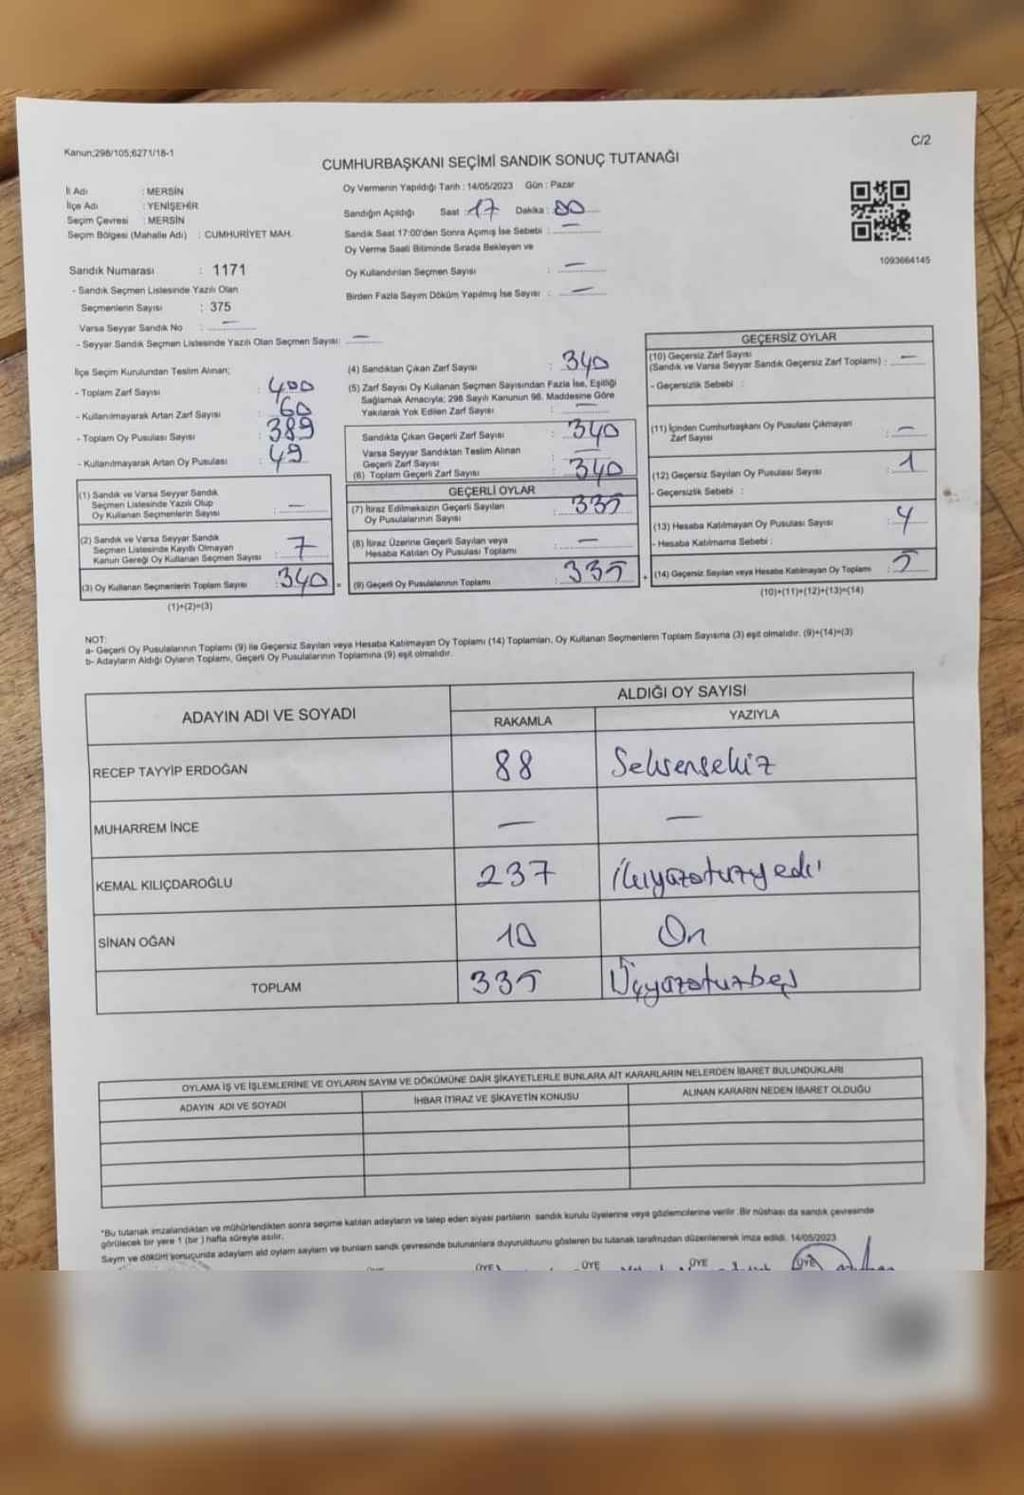 Kanun;298/105;6271/18-1
C/2
CUMHURBAŞKANI SEÇİMİ SANDIK SONUÇ TUTANAĞI
İl Adı : MERSİN
İlçe Adı : YENİŞEHİR
Seçim Çevresi : MERSİN
Seçim Bölgesi (Mahalle Adı) : CUMHURİYET MAH.
Sandık Numarası : 1171
- Sandık Seçmen Listesinde Yazılı Olan
Seçmenlerin Sayısı : 375
Varsa Seyyar Sandık No : —
- Seyyar Sandık Seçmen Listesinde Yazılı Olan Seçmen Sayısı: —
Oy Vermenin Yapıldığı Tarih : 14/05/2023 Gün : Pazar
Sandığın Açıldığı Saat : 17 Dakika : 00
Sandık Saat 17:00'den Sonra Açımış İse Sebebi : —
Oy Verme Saati Bitiminde Sırada Bekleyen ve
Oy Kullandırılan Seçmen Sayısı : —
Birden Fazla Sayım Döküm Yapılmış İse Sayısı : —
1093664145
İlçe Seçim Kurulundan Teslim Alınan;
- Toplam Zarf Sayısı : 400
- Kullanılmayarak Artan Zarf Sayısı : 60
- Toplam Oy Pusulası Sayısı : 389
- Kullanılmayarak Artan Oy Pusulası : 49
(1) Sandık ve Varsa Seyyar Sandık
Seçmen Listesinde Yazılı Olup
Oy Kullanan Seçmenlerin Sayısı : —
(2) Sandık ve Varsa Seyyar Sandık
Seçmen Listesinde Kayıtlı Olmayan
Kanun Gereği Oy Kullanan Seçmen Sayısı : 7
(3) Oy Kullanan Seçmenlerin Toplam Sayısı : 340 =
(1)+(2)=(3)
(4) Sandıktan Çıkan Zarf Sayısı : 340
(5) Zarf Sayısı Oy Kullanan Seçmen Sayısından Fazla İse, Eşitliği
Sağlamak Amacıyla; 298 Sayılı Kanunun 98. Maddesine Göre
Yakılarak Yok Edilen Zarf Sayısı : —
Sandıkta Çıkan Geçerli Zarf Sayısı : 340
Varsa Seyyar Sandıktan Teslim Alınan
Geçerli Zarf Sayısı : —
(6) Toplam Geçerli Zarf Sayısı : 340
GEÇERLİ OYLAR
(7) İtiraz Edilmeksizin Geçerli Sayılan
Oy Pusulalarının Sayısı : 335
(8) İtiraz Üzerine Geçerli Sayılan veya
Hesaba Katılan Oy Pusulası Toplamı : —
(9) Geçerli Oy Pusulalarının Toplamı : 335 +
GEÇERSİZ OYLAR
(10) Geçersiz Zarf Sayısı
(Sandık ve Varsa Seyyar Sandık Geçersiz Zarf Toplamı) : —
- Geçersizlik Sebebi :
(11) İçinden Cumhurbaşkanı Oy Pusulası Çıkmayan
Zarf Sayısı : —
(12) Geçersiz Sayılan Oy Pusulası Sayısı : 1
- Geçersizlik Sebebi :
(13) Hesaba Katılmayan Oy Pusulası Sayısı : 4
- Hesaba Katılmama Sebebi :
(14) Geçersiz Sayılan veya Hesaba Katılmayan Oy Toplamı : 5
(10)+(11)+(12)+(13)=(14)
NOT:
a- Geçerli Oy Pusulalarının Toplamı (9) ile Geçersiz Sayılan veya Hesaba Katılmayan Oy Toplamı (14) Toplamları, Oy Kullanan Seçmenlerin Toplam Sayısına (3) eşit olmalıdır. (9)+(14)=(3)
b- Adayların Aldığı Oyların Toplamı, Geçerli Oy Pusulalarının Toplamına (9) eşit olmalıdır.
ADAYIN ADI VE SOYADI
ALDIĞI OY SAYISI
RAKAMLA YAZIYLA
RECEP TAYYİP ERDOĞAN 88 Seksensekiz
MUHARREM İNCE — —
KEMAL KILIÇDAROĞLU 237 İkiyüzotuzyedi
SİNAN OĞAN 10 On
TOPLAM 335 Üçyüzotuzbeş
OYLAMA İŞ VE İŞLEMLERİNE VE OYLARIN SAYIM VE DÖKÜMÜNE DAİR ŞİKAYETLERLE BUNLARA AİT KARARLARIN NELERDEN İBARET BULUNDUKLARI
ADAYIN ADI VE SOYADI İHBAR İTİRAZ VE ŞİKAYETİN KONUSU ALINAN KARARIN NEDEN İBARET OLDUĞU
*Bu tutanak imzalandıktan ve mühürlendikten sonra seçime katılan adayların ve talep eden siyasi partilerin sandık kurulu üyelerine veya gözlemcilerine verilir. Bir nüshası da sandık çevresinde
görülecek bir yere 1 (bir ) hafta süreyle asılır.
Sayım ve döküm sonuçunda adayların ald oyların sayıları ve bunların sandık çevresinde bulunanlara duyurulduunu gösteren bu tutanak tarafımızdan düzenlenerek imza edildi. 14/05/2023
ÜYE ÜYE ÜYE ÜYE